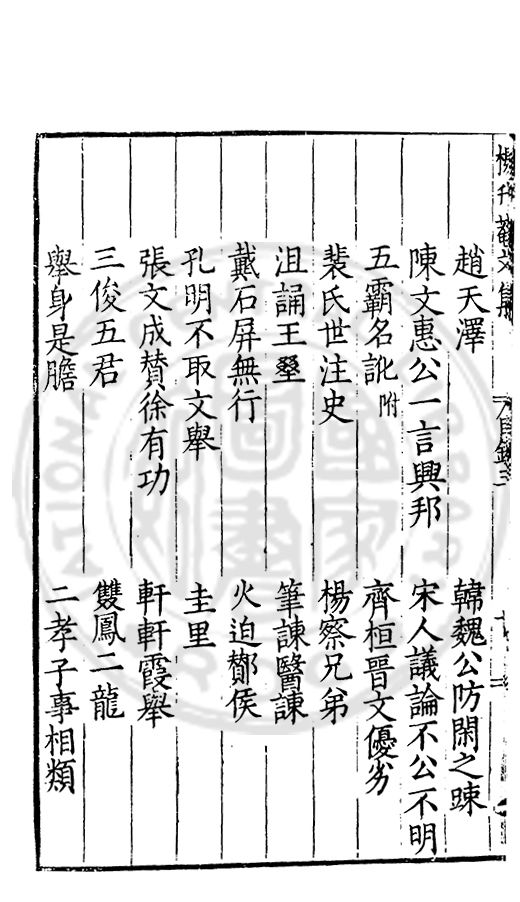 趙天澤　韓魏公防閑之踈
陳文惠公一言興邦　宋人議論不公不明
五霸名訛附　齊桓晉文優劣
裴氏世注史　楊察兄弟
沮誦王𡐛　筆諫醫諫
戴石屏無行　火迫酇侯
孔明不取文舉　圭里
張文成賛徐有功　軒軒霞舉
三俊五君　雙鳳二龍
舉身是膽　二孝子事相類